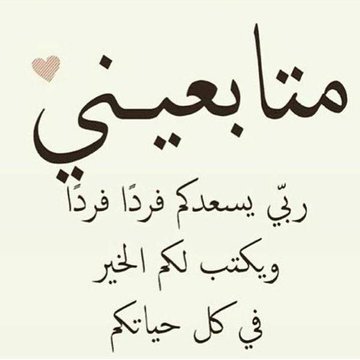 متابعيني
ربّي يسعدكم فردًا فردًا
ويكتب لكم الخير
في كل حياتكم